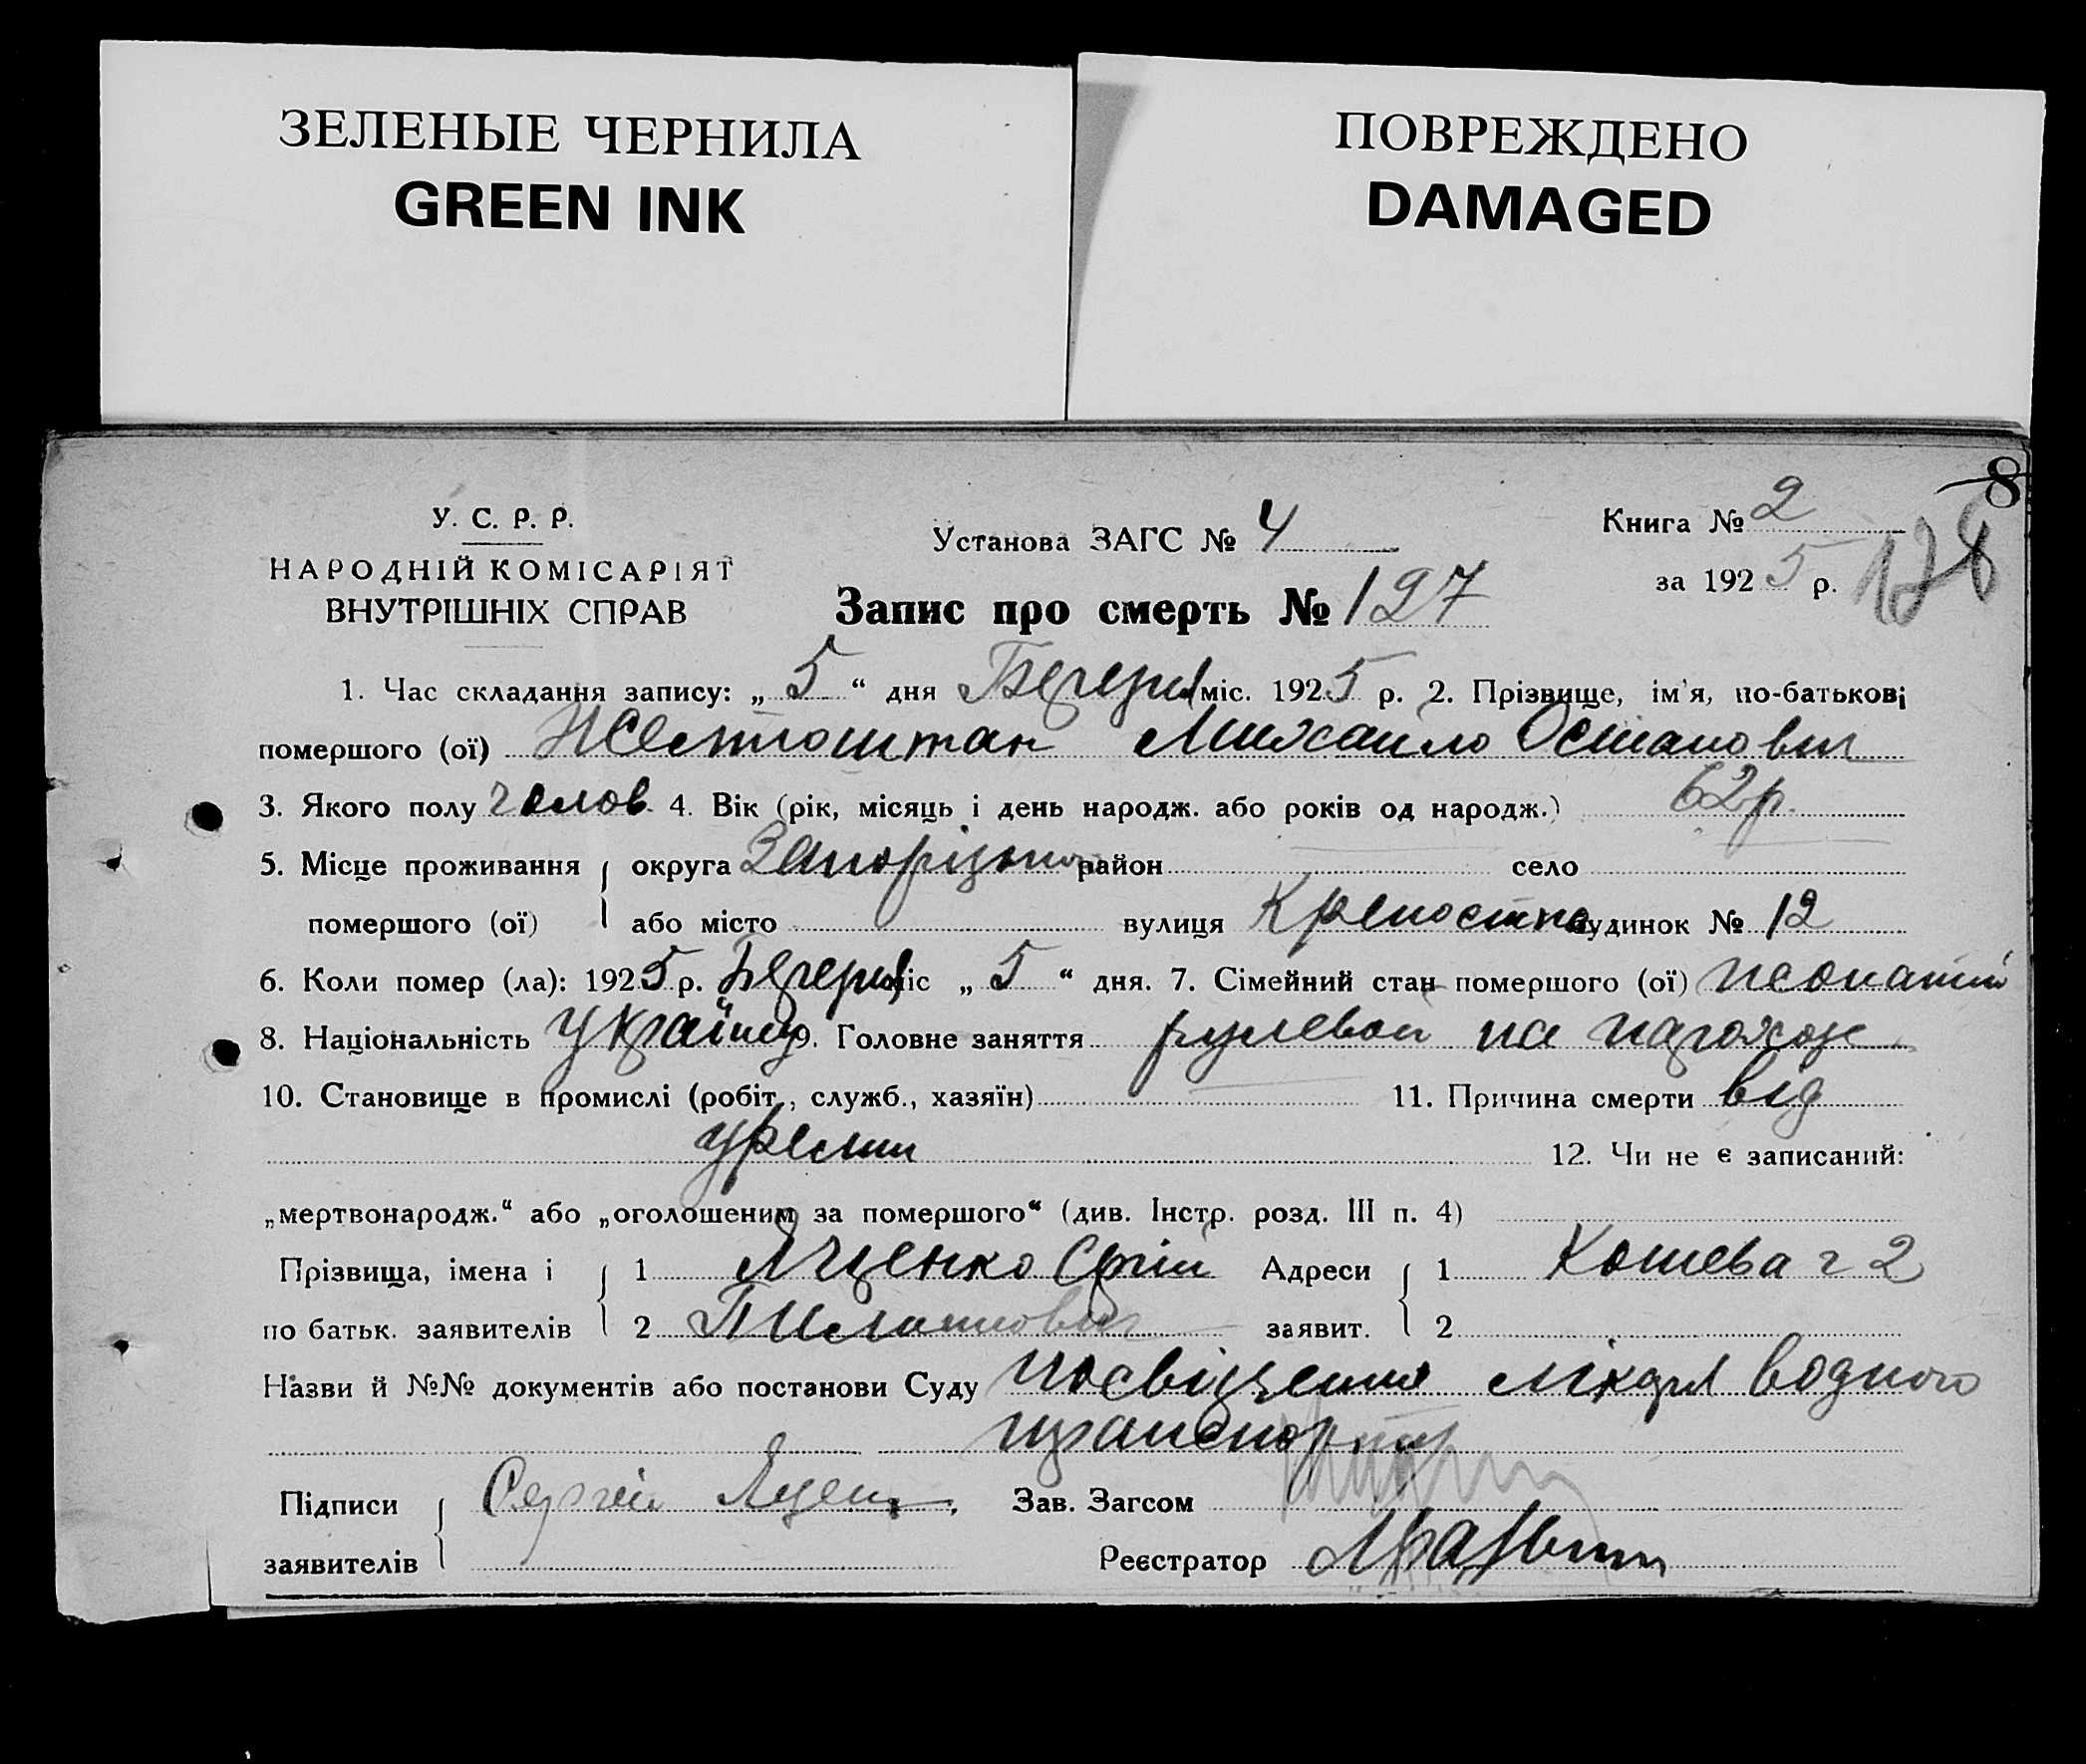 ЗЕЛЕНЫЕ ЧЕРНИЛА
GREEN INK
ПОВРЕЖДЕНО
DAMAGED
8
У. С. Р. Р.
НАРОДНІЙ КОМІСАРІЯТ
ВНУТРІШНІХ СПРАВ
Установа ЗАГС № 4
Книга № 2
за 1925 р.
128
Запис про смерть № 127
1. Час складання запису: „ 5 “ дня міс. 1925 р. 2. Прізвище, ім'я, по-батькові
помершого (ої) Михайло Остапович
3. Якого полу чолов. 4. Вік (рік, місяць і день народж. або років од народж.) 62 р.
5. Місце проживання округа район село
помершого (ої) або місто вулиця Крепостна будинок № 12
6. Коли помер (ла): 1925 р. міс „ 5 “ дня. 7. Сімейний стан помершого (ої)
8. Національність 9. Головне заняття рулевой на
10. Становище в промислі (робіт., служб., хазяїн) 11. Причина смерти від
уремии
12. Чи не є записаний:
„мертвонародж.“ або „оголошеним за помершого“ (див. Інстр. розд. III п. 4)
Прізвища, імена і 1 Яценко Сергій Адреси 1 Кошева ч 2
по батьк. заявителів 2 заявит. 2
Назви й №№ документів або постанови Суду посвідчення лікаря водного
транспорту
Підписи Сергій Яценко Зав. Загсом
заявителів Реєстратор